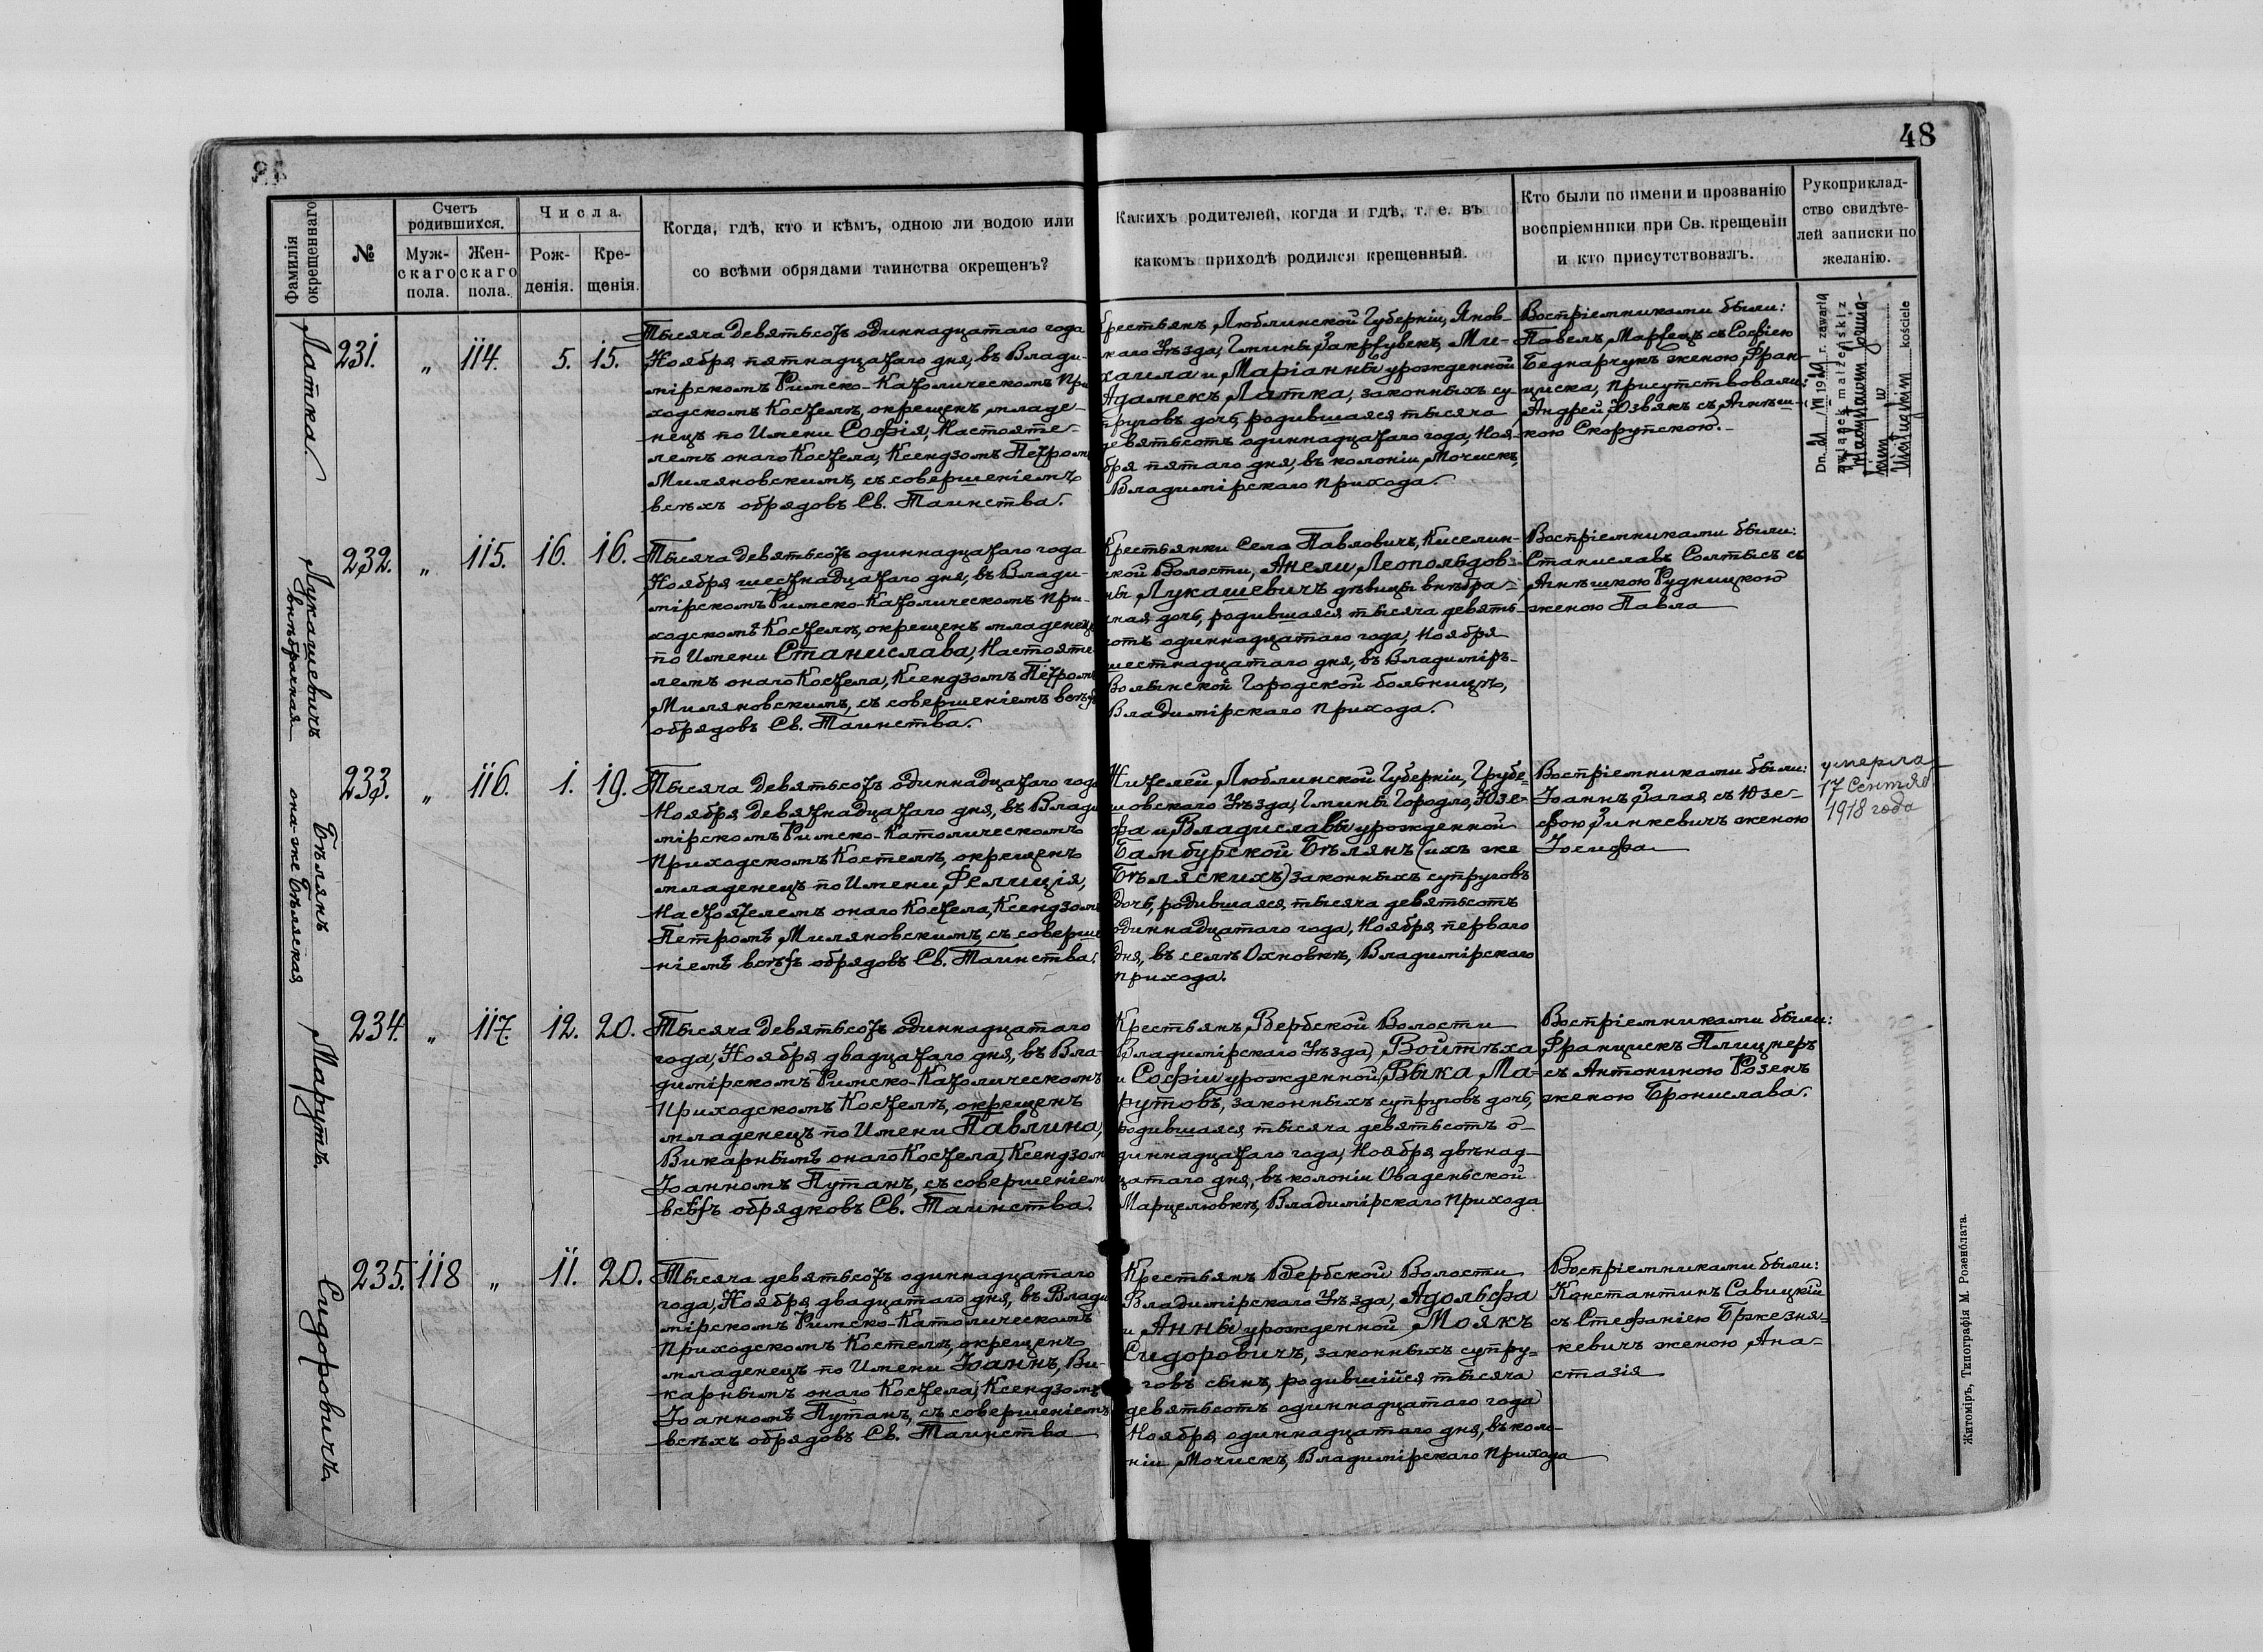 48
Фамилія окрещеннаго
№
Счетъ родившихся.
Муж-скаго пола.
Жен-скаго пола.
Числа.
Рож-денія.
Кре-щенія.
Когда, гдѣ, кто и кѣмъ, одною ли водою или
со всѣми обрядами таинства окрещенъ?
Какихъ родителей, когда и гдѣ, т. е. въ
какомъ приходѣ родился крещенный.
Кто были по имени и прозванію
воспріемники при Св. крещеніи
и кто присутствовалъ.
Рукоприклад-
ство свидѣте-
лей записки по
желанію.
Латка.
231. „ 114. 5. 15.
Тысяча девятьсотъ одиннадцатаго года
Ноября пятнадцатаго дня, въ Влади-
мірскомъ Римско-Католическомъ При
ходскомъ Костелѣ, окрещенъ младе-
нецъ по Имени Софія, Настояте-
лемъ онаго Костела, Ксендзомъ Петромъ
Миляновскимъ, съ совершеніемъ
всѣхъ обрядовъ Св. Таинства.
Крестьянъ Люблинской Губерніи, Янов-
скаго Уѣзда, Гмины Закржувекъ, Ми-
хаила и Маріанны урожденной
Адамекъ Латка, законныхъ су-
пруговъ дочь, родившаяся тысяча
девятьсотъ одиннадцатаго года, Ноя-
бря пятаго дня, въ колоніи Мочискъ,
Владимірскаго прихода.
Воспріемниками были:
Павелъ Марцецъ съ Софіею
Беднарчукъ женою Фран-
циска, присутствовали:
Андрей Юзвякъ съ Агнѣш-
кою Скорупскою.
Dn. 21 VI r. zawarła
związek małżeński z
w
kościele
Лукашевичъ
внѣбрачная
232. „ 115. 16. 16.
Тысяча девятьсотъ одиннадцатаго года
Ноября шестнадцатаго дня, въ Влади-
мірскомъ Римско-Католическомъ При-
ходскомъ Костелѣ, окрещенъ младенецъ
по Имени Станислава, Настояте
лемъ онаго Костела, Ксендзомъ Петромъ
Миляновскимъ, съ совершеніемъ всѣхъ
обрядовъ Св. Таинства.
Крестьянки Села Павловичъ, Киселин-
ской Волости, Анели Леопольдов-
ны Лукашевичъ дѣвицы внѣбра-
чная дочь, родившаяся тысяча девять-
сотъ одиннадцатаго года, Ноября
шестнадцатаго дня, въ Владимір-
Волынской Городской больницѣ,
Владимірскаго прихода.
Воспріемниками были:
Станиславъ Солтысъ съ
Агнѣшкою Рудницкою
женою Павла
Бѣлянъ
она-же Бѣляская
233. „ 116. 1. 19.
Тысяча девятьсотъ одиннадцатаго года
Ноября девятнадцатаго дня, въ Влади
мірскомъ Римско-Католическомъ
Приходскомъ Костелѣ, окрещенъ
младенецъ по Имени Фелиція,
Настоятелемъ онаго Костела, Ксендзомъ
Петромъ Миляновскимъ, съ соверше
ніемъ всѣхъ обрядовъ Св. Таинства.
Жителей Люблинской Губерніи, Грубе-
шовскаго Уѣзда, Гмины Городло, Юзе-
фа и Владиславы урожденной
Бамбурской Бѣлянъ (ихъ же
Бѣляскихъ) законныхъ супруговъ
дочь, родившаяся тысяча девятьсотъ
одиннадцатаго года, Ноября перваго
дня, въ селѣ Охновкѣ, Владимірскаго
прихода.
Воспріемниками были:
Іоаннъ Загая съ Юзе-
фою Зинкевичъ женою
Іосифа
умерла
17 Сентяб
1918 года
Марутъ.
234. „ 117. 12. 20.
Тысяча девятьсотъ одиннадцатаго
года, Ноября двадцатаго дня, въ Вла-
димірскомъ Римско-Католическомъ
Приходскомъ Костелѣ, окрещенъ
младенецъ по Имени Павлина,
Викарнымъ онаго Костела, Ксендзом
Іоанномъ Путанъ, съ совершеніем
всѣхъ обрядковъ Св. Таинства.
Крестьянъ Вербской Волости
Владимірскаго Уѣзда, Войтѣха
и Софіи урожденной Выка Ма-
рутовъ, законныхъ супруговъ дочь,
родившаяся тысяча девятьсотъ о-
диннадцатаго года, Ноября двѣнад-
цатаго дня, въ колоніи Оваденьской
Марцелювкѣ, Владимірскаго прихода
Воспріемниками были:
Францискъ Плицнеръ
съ Антониною Розенъ
женою Бронислава.
Сидоровичъ.
235. 118 „ 11. 20.
Тысяча девятьсотъ одиннадцатаго
года, Ноября двадцатаго дня, въ Влади
мірскомъ Римско-Католическомъ
Приходскомъ Костелѣ, окрещенъ
младенецъ по Имени Іоаннъ, Ви-
карнымъ онаго Костела, Ксендзомъ
Іоанномъ Путанъ, съ совершеніемъ
всѣхъ обрядовъ Св. Таинства
Крестьянъ Вербской Волости
Владимірскаго Уѣзда, Адольфа
и Анны урожденной Моякъ
Сидоровичъ, законныхъ супру-
говъ сынъ, родившійся тысяча
девятьсотъ одиннадцатаго года
Ноября одиннадцатаго дня, въ коло-
ніи Мочискъ, Владимірскаго прихода
Воспріемниками были:
Константинъ Савицкій
съ Стефаніею Бржезня-
кевичъ женою Ана-
стазія
Житоміръ, Типографія М. Розенблата.